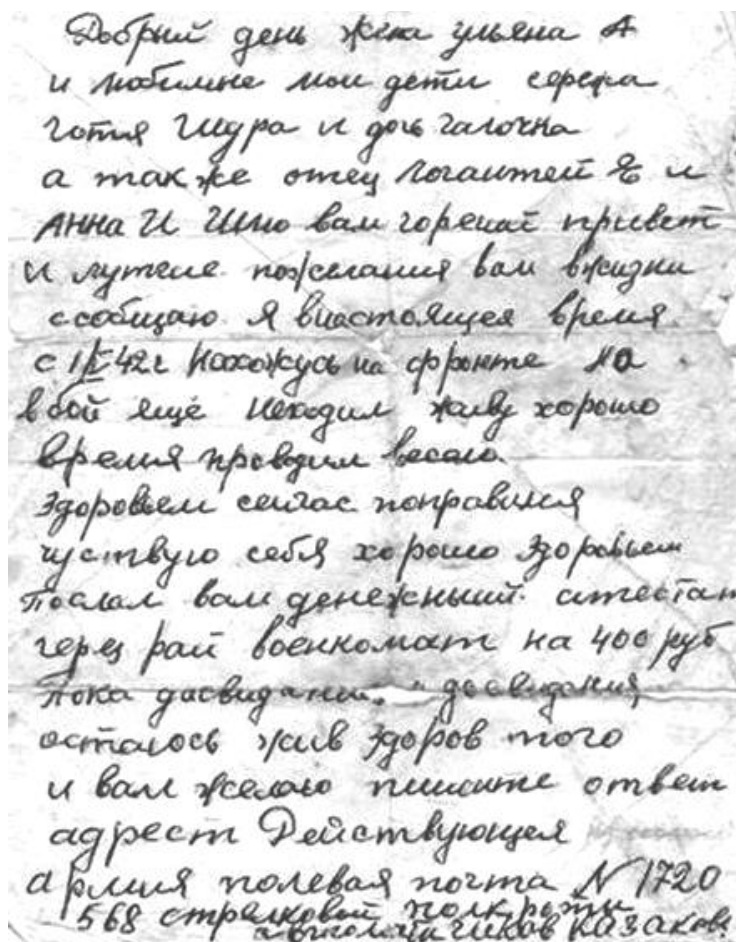 Добрый день жена ульяна А
и любимые мои дети сережа
Шура и дочь галочка
а также отец и
АННА И Шлю вам горечий привет
и лутшие пожелания вам вжизни
сообщаю я внастоящея время
с 42г Нахожусь на фронте НО
в бой ещё неходил живу хорошо
время проводим весело.
Здоровьем сейчас поправился
чуствую себя хорошо здоровьем
Послал вам денежный аттестат
через рай военкомат на 400 руб
Пока досвидания. досвидания
остаюсь жив здоров того
и вам желаю пишите ответ
адрест Действующея
армия полевая почта N 1720
568 стрелковый полк
КАЗАКОВ.